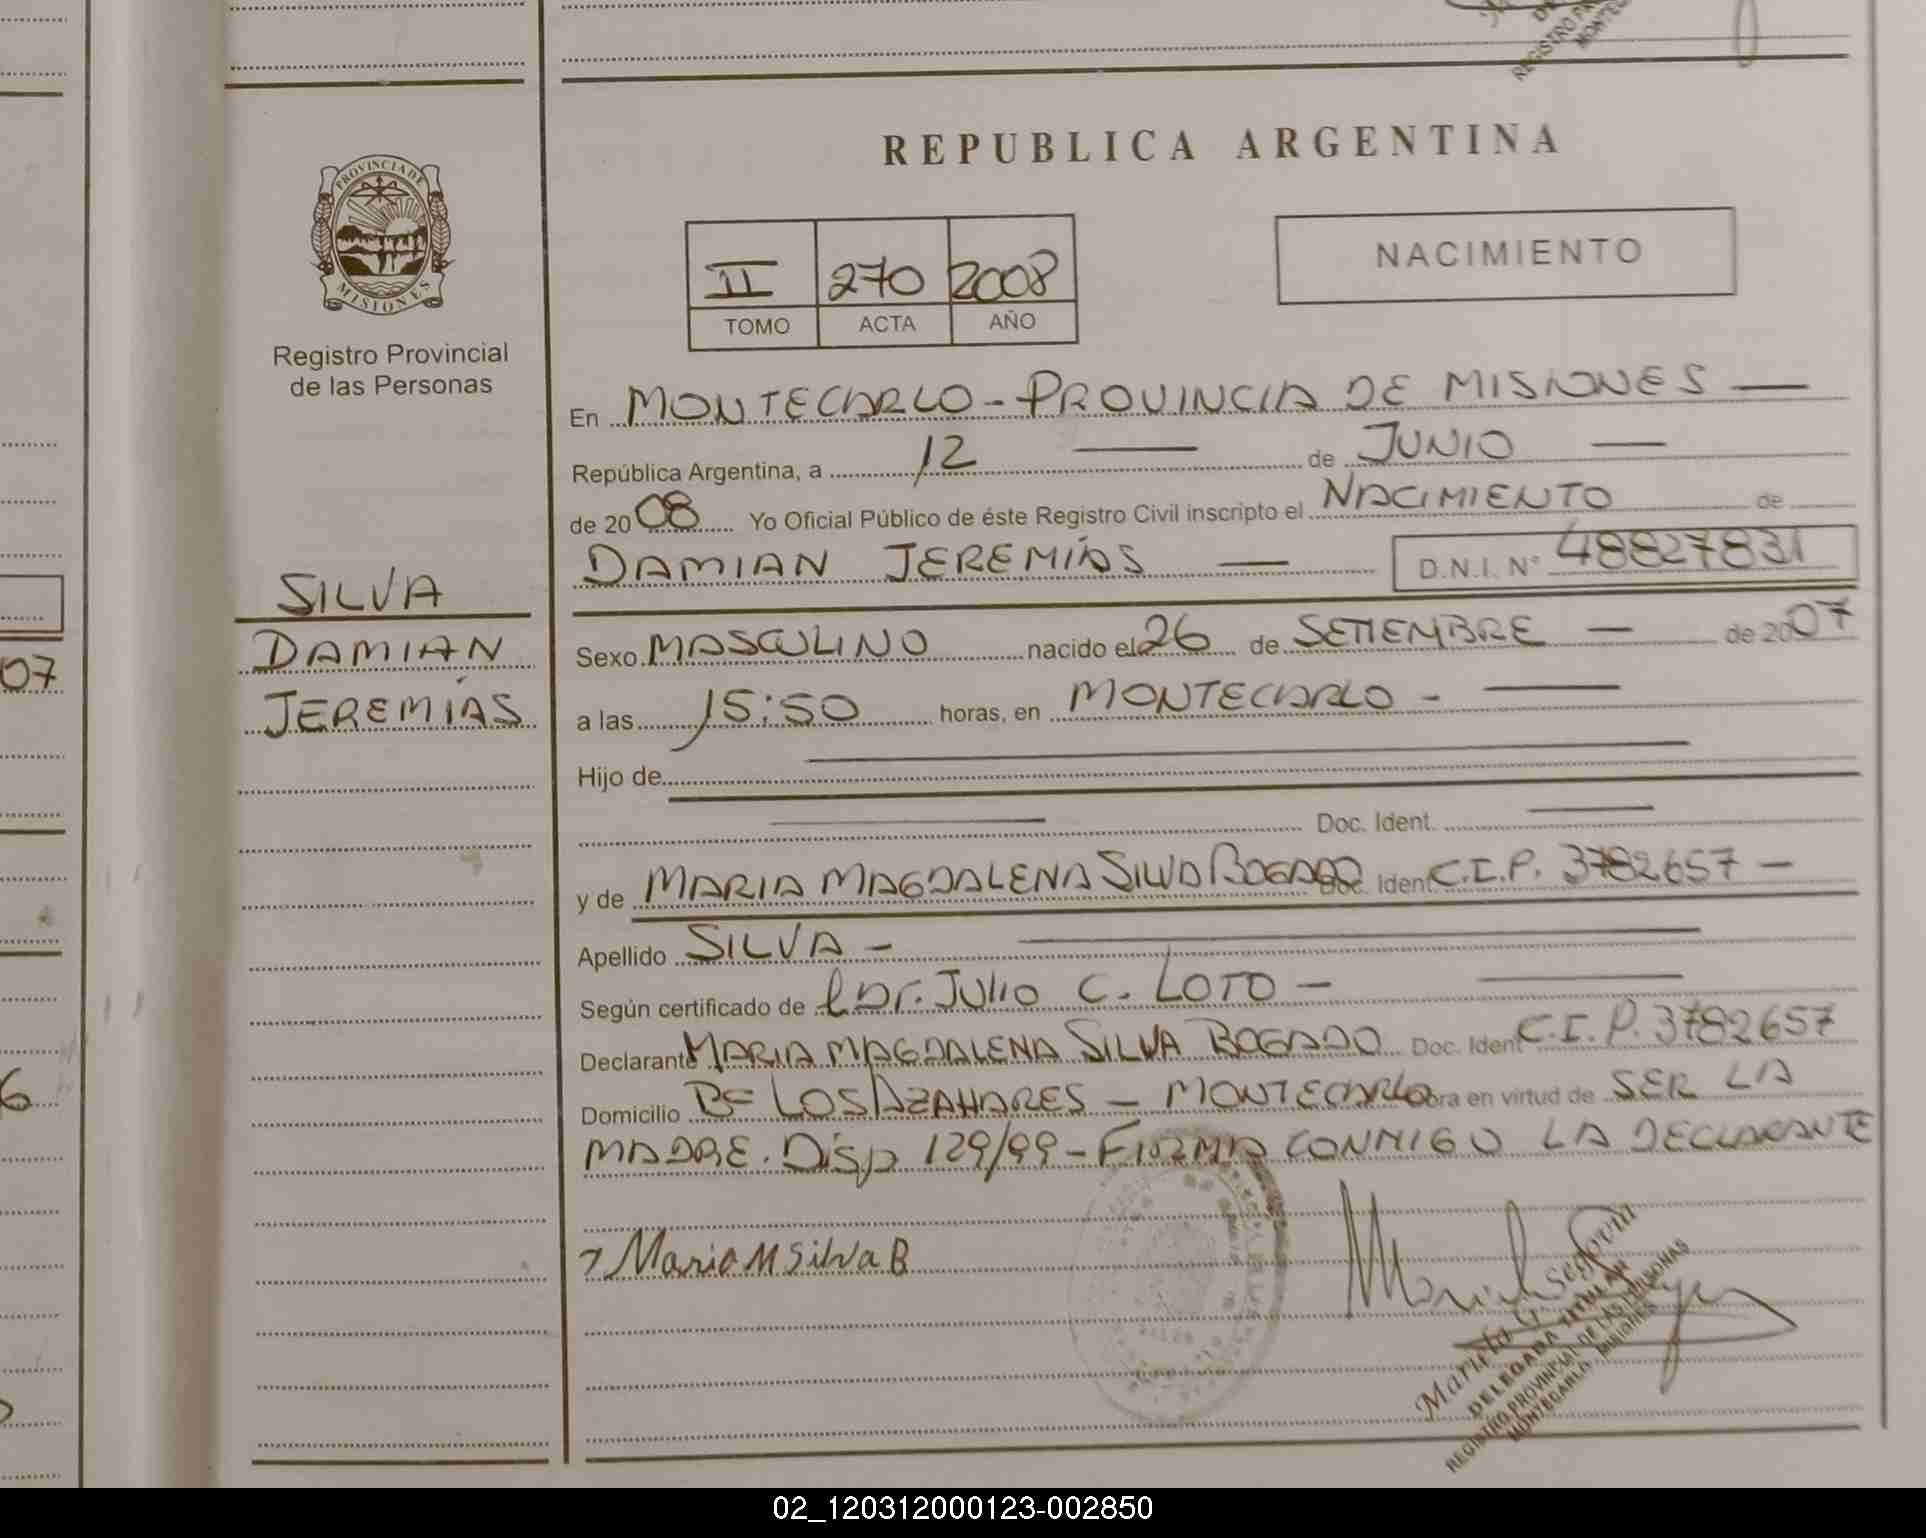 REPUBLICA ARGENTINA
PROVINCIA DE
MISIONES
Registro Provincial
de las Personas
II 270 2008
TOMO ACTA AÑO
NACIMIENTO
En MONTECARLO - PROVINCIA DE MISIONES —
República Argentina, a 12 — de JUNIO —
de 2008 Yo Oficial Público de éste Registro Civil inscripto el NACIMIENTO de
DAMIAN JEREMÍAS — D.N.I. N° 48827831
SILVA
DAMIAN
JEREMÍAS
Sexo MASCULINO nacido el 26 de SETIEMBRE — de 2007
a las 15:50 horas, en MONTECARLO - —
Hijo de —
— Doc. Ident. —
y de MARIA MAGDALENA SILVA BOGADO Doc. Ident C.I.P. 3782657 —
Apellido SILVA - —
Según certificado de Dr. Julio C. LOTO - —
Declarante MARIA MAGDALENA SILVA BOGADO Doc. Ident C.I.P. 3782657
Domicilio Bº LOS AZAHARES - MONTECARLO obra en virtud de SER LA
MADRE. Disp 129/99 - FIRMA CONMIGO LA DECLARANTE
Maria M Silva B
Segovia
DELEGADA TITULAR
REGISTRO PROVINCIAL DE LAS PERSONAS
MONTECARLO MISIONES
07
02_120312000123-002850